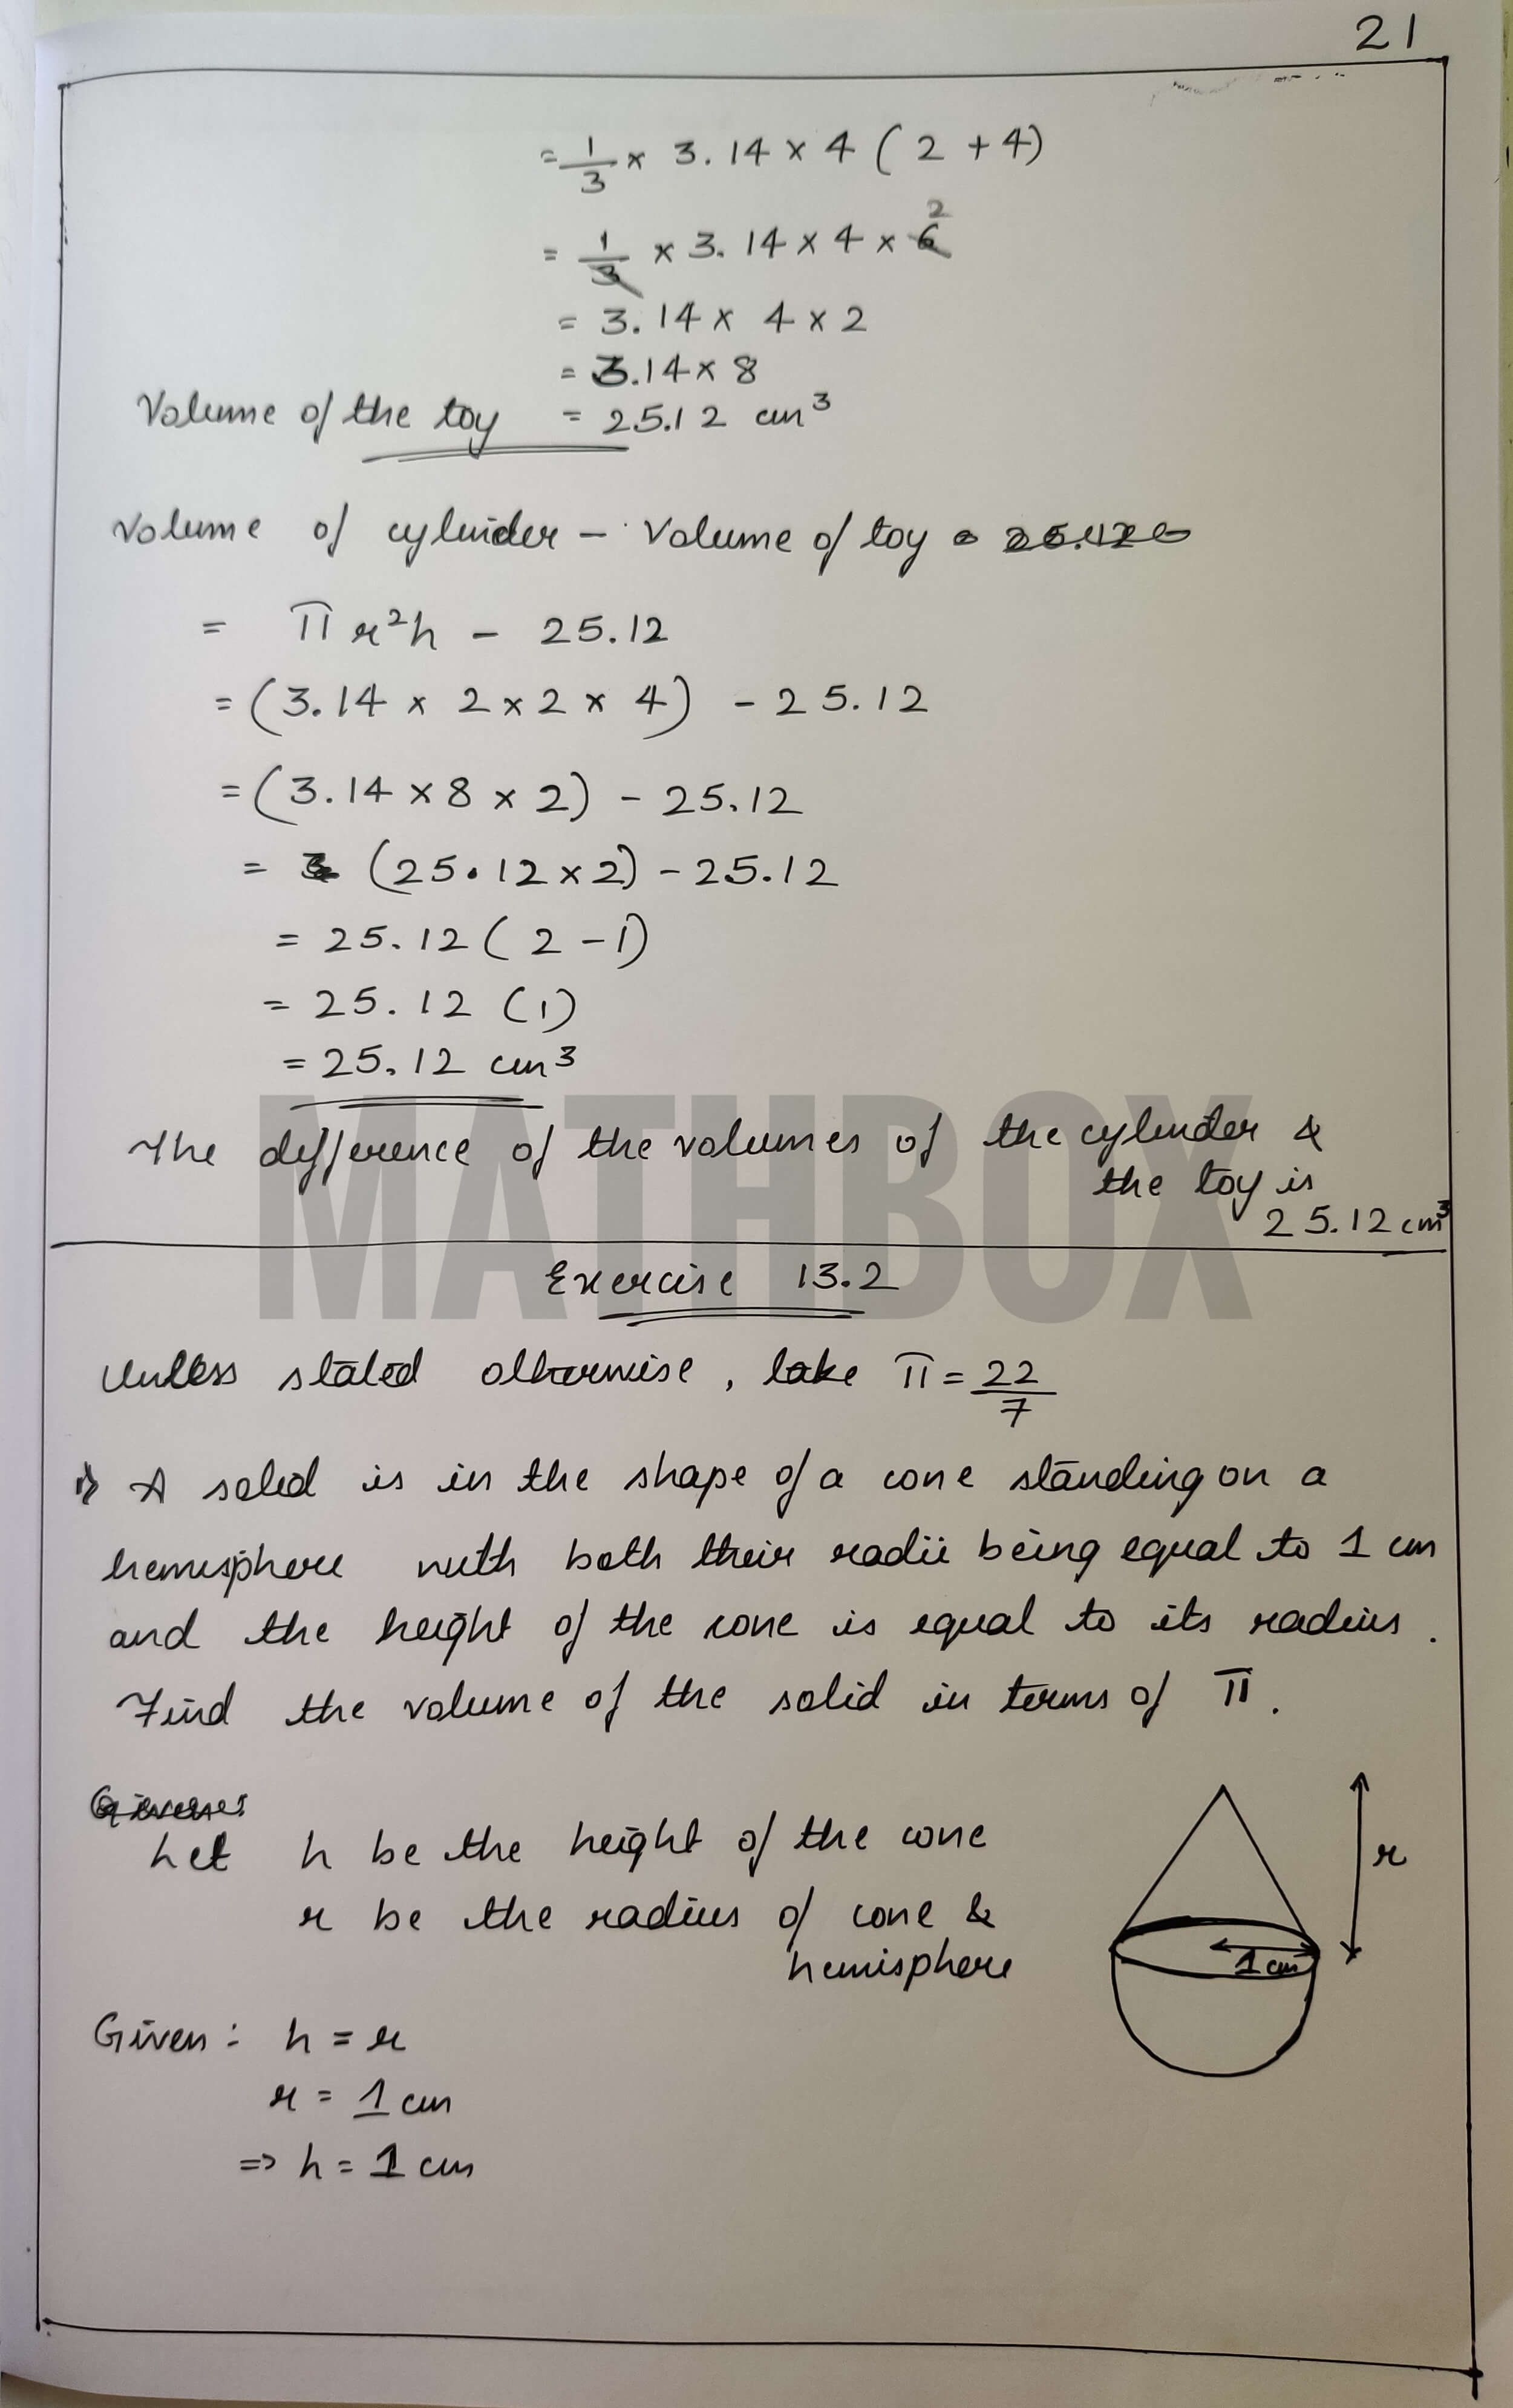 21
= 1/3 × 3.14 × 4 ( 2 + 4)
= 1/3 × 3.14 × 4 × 6 2
= 3.14 × 4 × 2
= 3.14 × 8
Volume of the toy = 25.12 cm³
Volume of cylinder - Volume of toy = 25.12
= π r²h - 25.12
= (3.14 × 2 × 2 × 4) - 25.12
= (3.14 × 8 × 2) - 25.12
= (25.12 × 2) - 25.12
= 25.12 ( 2 - 1)
= 25.12 (1)
= 25.12 cm³
The difference of the volumes of the cylinder &
the toy is
25.12 cm³
MATHBOX
Exercise 13.2
Unless stated otherwise, take π = 22/7
1) A solid is in the shape of a cone standing on a
hemisphere with both their radii being equal to 1 cm
and the height of the cone is equal to its radius.
Find the volume of the solid in terms of π.
Let h be the height of the cone
r be the radius of cone &
hemisphere
r
1 cm
Given : h = r
r = 1 cm
=> h = 1 cm